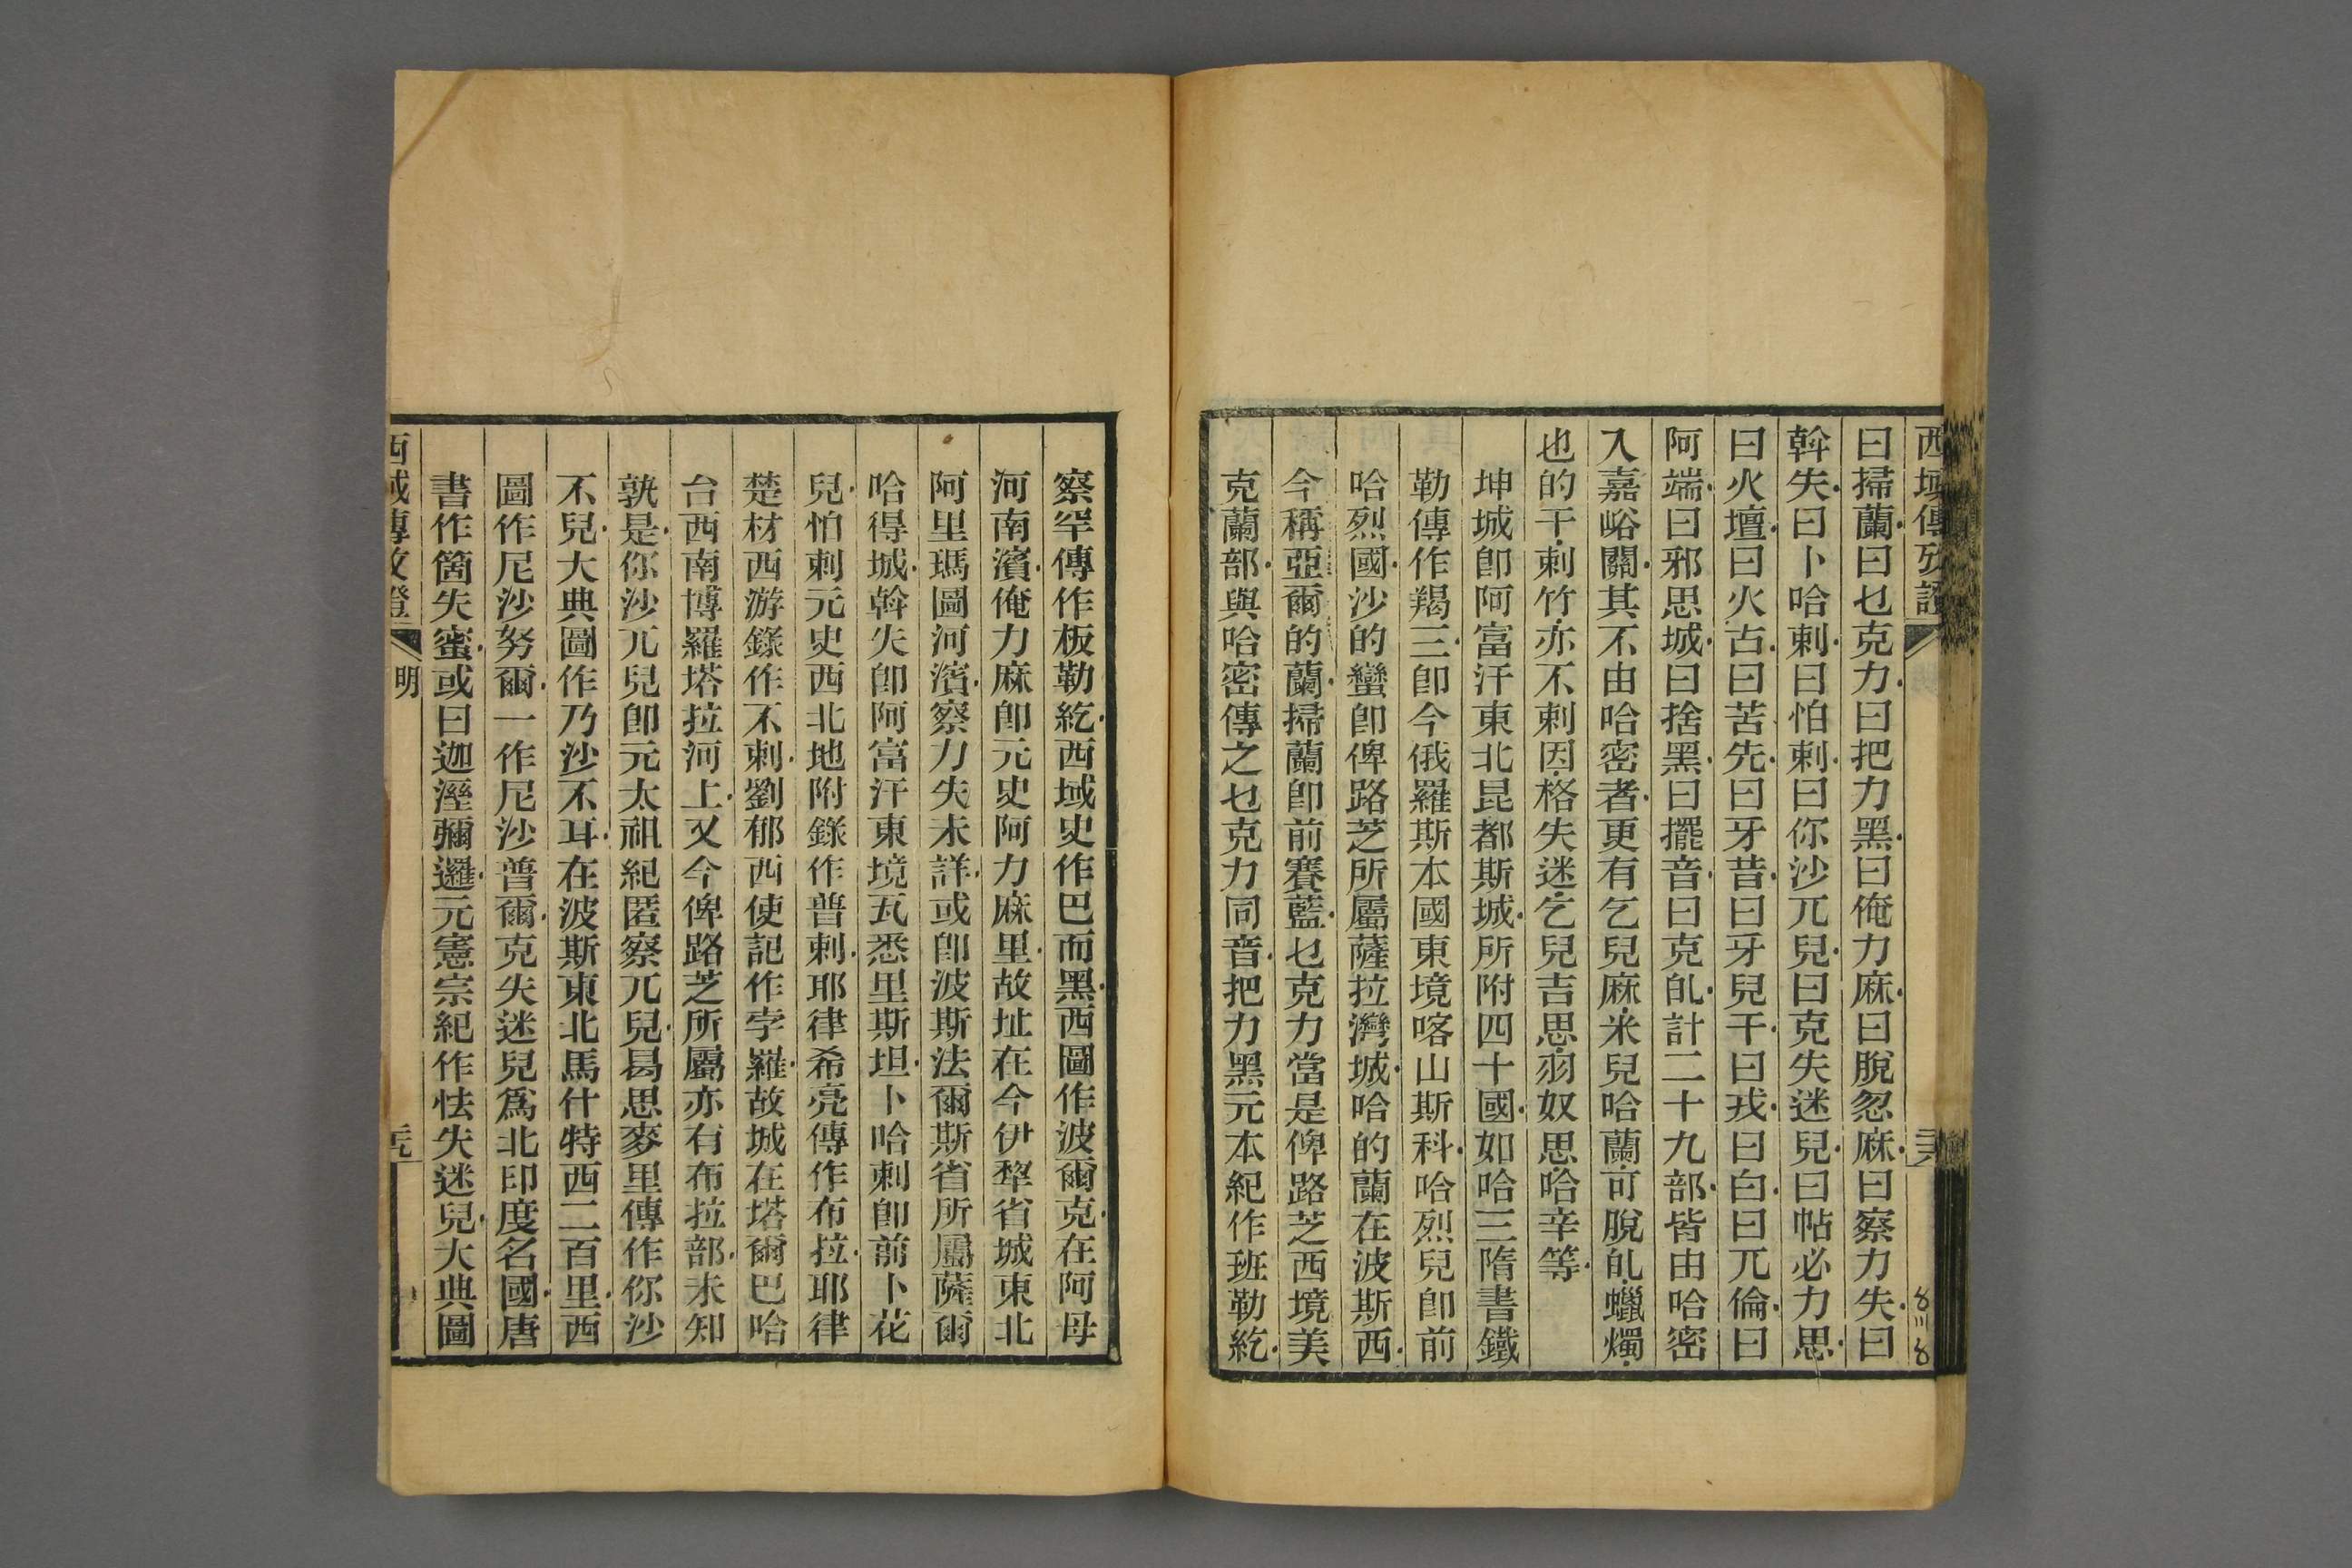 西域傳攷證
曰掃蘭曰乜克力曰把力黑曰俺力麻曰脫忽麻曰察力失曰
斡失曰卜哈剌曰怕剌曰你沙兀兒曰克失迷兒曰帖必力思
曰火壇曰火占曰苦先曰牙昔曰牙兒干曰戎曰白曰兀倫曰
阿端曰邪思城曰捨黑曰擺音曰克癿計二十九部皆由哈密
入嘉峪關其不由哈密者更有乞兒麻米兒哈蘭可脫癿蠟燭
也的干剌竹亦不剌因格失迷乞兒吉思羽奴思哈辛等
坤城卽阿富汗東北昆都斯城所附四十國如哈三隋書鐵
勒傳作羯三卽今俄羅斯本國東境喀山斯科哈烈兒卽前
哈烈國沙的蠻卽俾路芝所屬薩拉灣城哈的蘭在波斯西
今稱亞爾的蘭掃蘭卽前賽藍乜克力當是俾路芝西境美
克蘭部與哈密傳之乜克力同音把力黑元本紀作班勒紇
察罕傳作板勒紇西域史作巴而黑西圖作波爾克在阿母
河南濱俺力麻卽元史阿力麻里故址在今伊犂省城東北
阿里瑪圖河濱察力失未詳或卽波斯法爾斯省所屬薩爾
哈得城斡失卽阿富汗東境瓦悉里斯坦卜哈剌卽前卜花
兒怕剌元史西北地附錄作普剌耶律希亮傳作布拉耶律
楚材西游錄作不剌劉郁西使記作孛羅故城在塔爾巴哈
台西南博羅塔拉河上又今俾路芝所屬亦有布拉部未知
孰是你沙兀兒卽元太祖紀匿察兀兒曷思麥里傳作你沙
不兒大典圖作乃沙不耳在波斯東北馬什特西二百里西
圖作尼沙努爾一作尼沙普爾克失迷兒爲北印度名國唐
書作箇失蜜或曰迦溼彌邏元憲宗紀作怯失迷兒大典圖
西域傳攷證 明